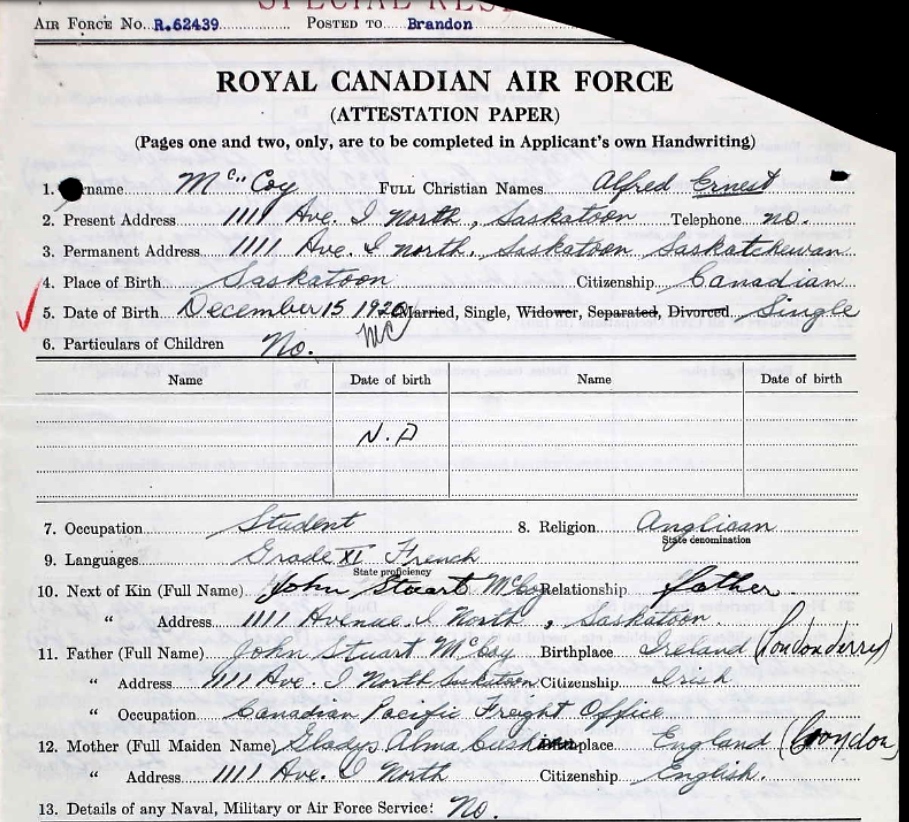 SPECIAL RES
AIR FORCE No. R.62439 POSTED TO Brandon
ROYAL CANADIAN AIR FORCE
(ATTESTATION PAPER)
(Pages one and two, only, are to be completed in Applicant's own Handwriting)
1. rname McCoy FULL Christian Names Alfred Ernest
2. Present Address 1111 Ave. I North, Saskatoon Telephone no.
3. Permanent Address 1111 Ave. I north, Saskatoon Saskatchewan
4. Place of Birth Saskatoon Citizenship Canadian
5. Date of Birth December 15 1920 Married, Single, Widower, Separated, Divorced Single
MC
6. Particulars of Children No.
Name Date of birth Name Date of birth
7. Occupation Student 8. Religion Anglican
State denomination
9. Languages Grade XI French
State proficiency
10. Next of Kin (Full Name) John Stuart McCoy Relationship father.
" Address 1111 Avenue I North, Saskatoon.
11. Father (Full Name) John Stuart McCoy Birthplace Ireland (Londonderry)
" Address 1111 Ave. I North Saskatoon Citizenship Irish
" Occupation Canadian Pacific Freight Office
12. Mother (Full Maiden Name) Gladys Alma place England
" Address 1111 Ave. I North Citizenship English.
13. Details of any Naval, Military or Air Force Service: No.